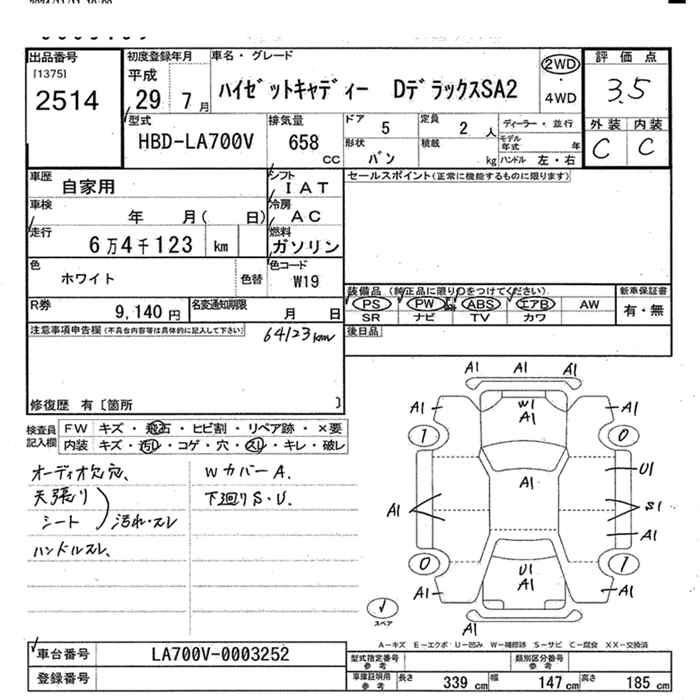 出品番号
[1375]
2514
初度登録年月
平成
29年 7月
車名・グレード
ハイゼットキャディー DデラックスSA2
2WD
・
4WD
評価点
3.5
外装 内装
C C
型式
HBD-LA700V
排気量
658
CC
ドア 5
形状 バン
定員 2人
積載 kg
ディーラー・並行
モデル年式 年
ハンドル 左・右
車歴
自家用
シフト
IAT
車検
年 月( 日)
冷房
AC
走行
6万4千123 km
燃料
ガソリン
色
ホワイト
色替
色コード
W19
R券
9,140円
名変通知期限
月 日
セールスポイント(正常に機能するものに限ります)
装備品(純正品に限り○をつけてください)
PS PW ABS エアB AW
SR ナビ TV カワ
新車保証書
有・無
後日品
注意事項申告欄(不具合内容等は具体的に記入して下さい)
64123km
修復歴 有〔箇所 〕
検査員
記入欄
FW キズ・飛石・ヒビ割・リペア跡・×要
内装 キズ・汚れ・コゲ・穴・スレ・キレ・破レ
オーディオ欠品、
天張り
シート
汚れ・スレ
ハンドルスレ、
WカバーA.
下廻りS・U.
A1 A1 A1
A1 W1 A1 A1
1 0
U1
A1
A1 S1
A1
0 U1 1
A1 A1 A1
A1
スペア
A-キズ E-エクボ U-凹み W-補修跡 S-サビ C-腐食 XX-交換済
車台番号
LA700V-0003252
登録番号
型式指定番号
参考
類別区分番号
参考
車庫証明用
参考
長さ 339cm 幅 147cm 高さ 185cm